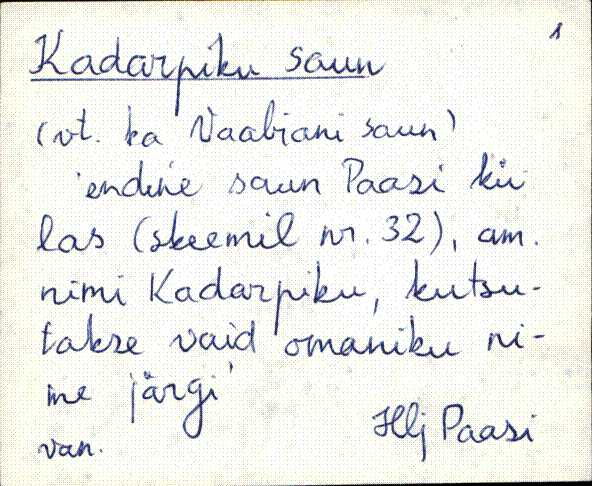 1
Kadarpiku saun
(vt. ka Vaabjani saun)
'endine saun Paasi kü-
las (skeemil nr. 32), am.
nimi Kadarpiku, kutsu-
takse vaid omaniku ni-
me järgi'
van.
Hlj Paasi